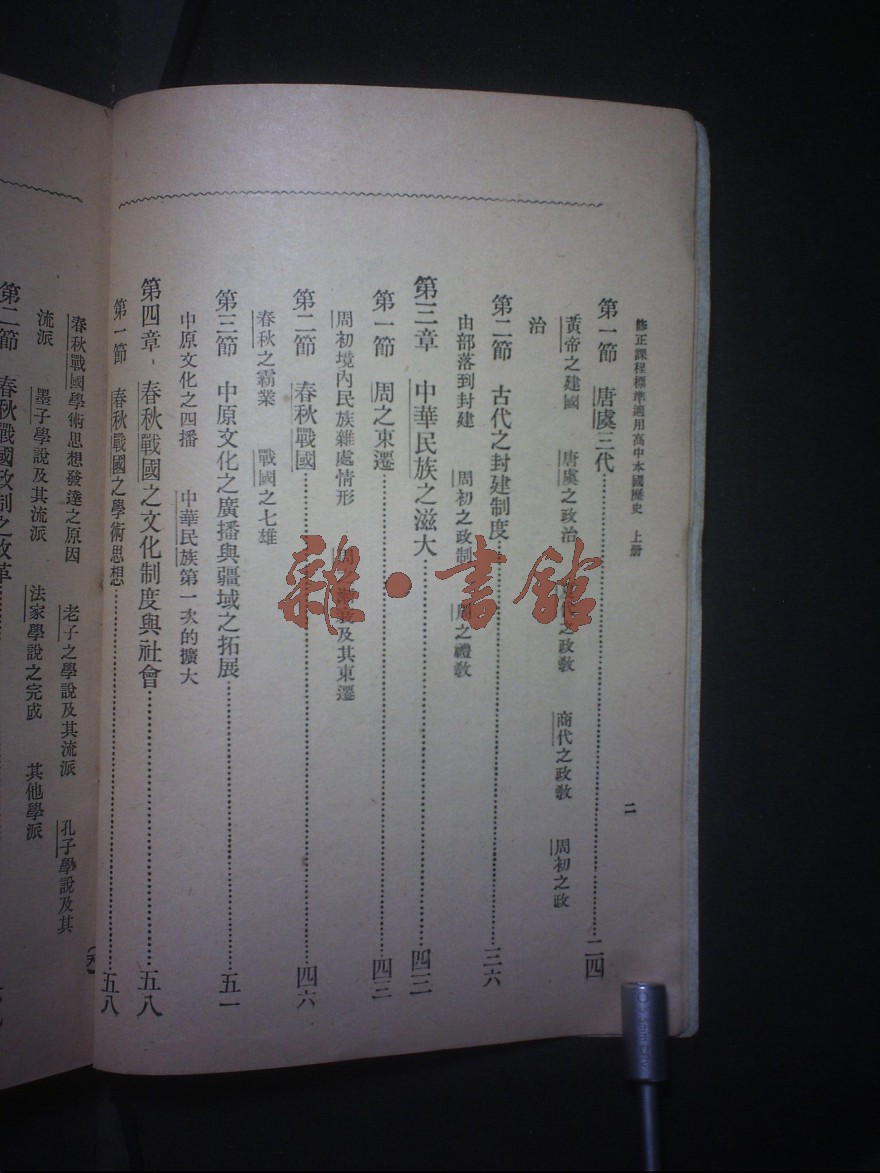 修正課程標準適用高中本國歷史 上册
二
第一節 唐虞三代……二四
黃帝之建國 唐虞之政治 之政敎 商代之政敎 周初之政
治
第二節 古代之封建制度……三六
由部落到封建 周初之政制 周之禮敎
第三章 中華民族之滋大……四三
第一節 周之東遷……四三
周初境內民族雜處情形 及其東遷
第二節 春秋戰國……四六
春秋之霸業 戰國之七雄
第三節 中原文化之廣播與疆域之拓展……五一
中原文化之四播 中華民族第一次的擴大
第四章 春秋戰國之文化制度與社會……五八
第一節 春秋戰國之學術思想……五八
春秋戰國學術思想發達之原因 老子之學說及其流派 孔子學說及其
流派 墨子學說及其流派 法家學說之完成 其他學派
第二節 春秋戰國政制之改革……
雜·書館